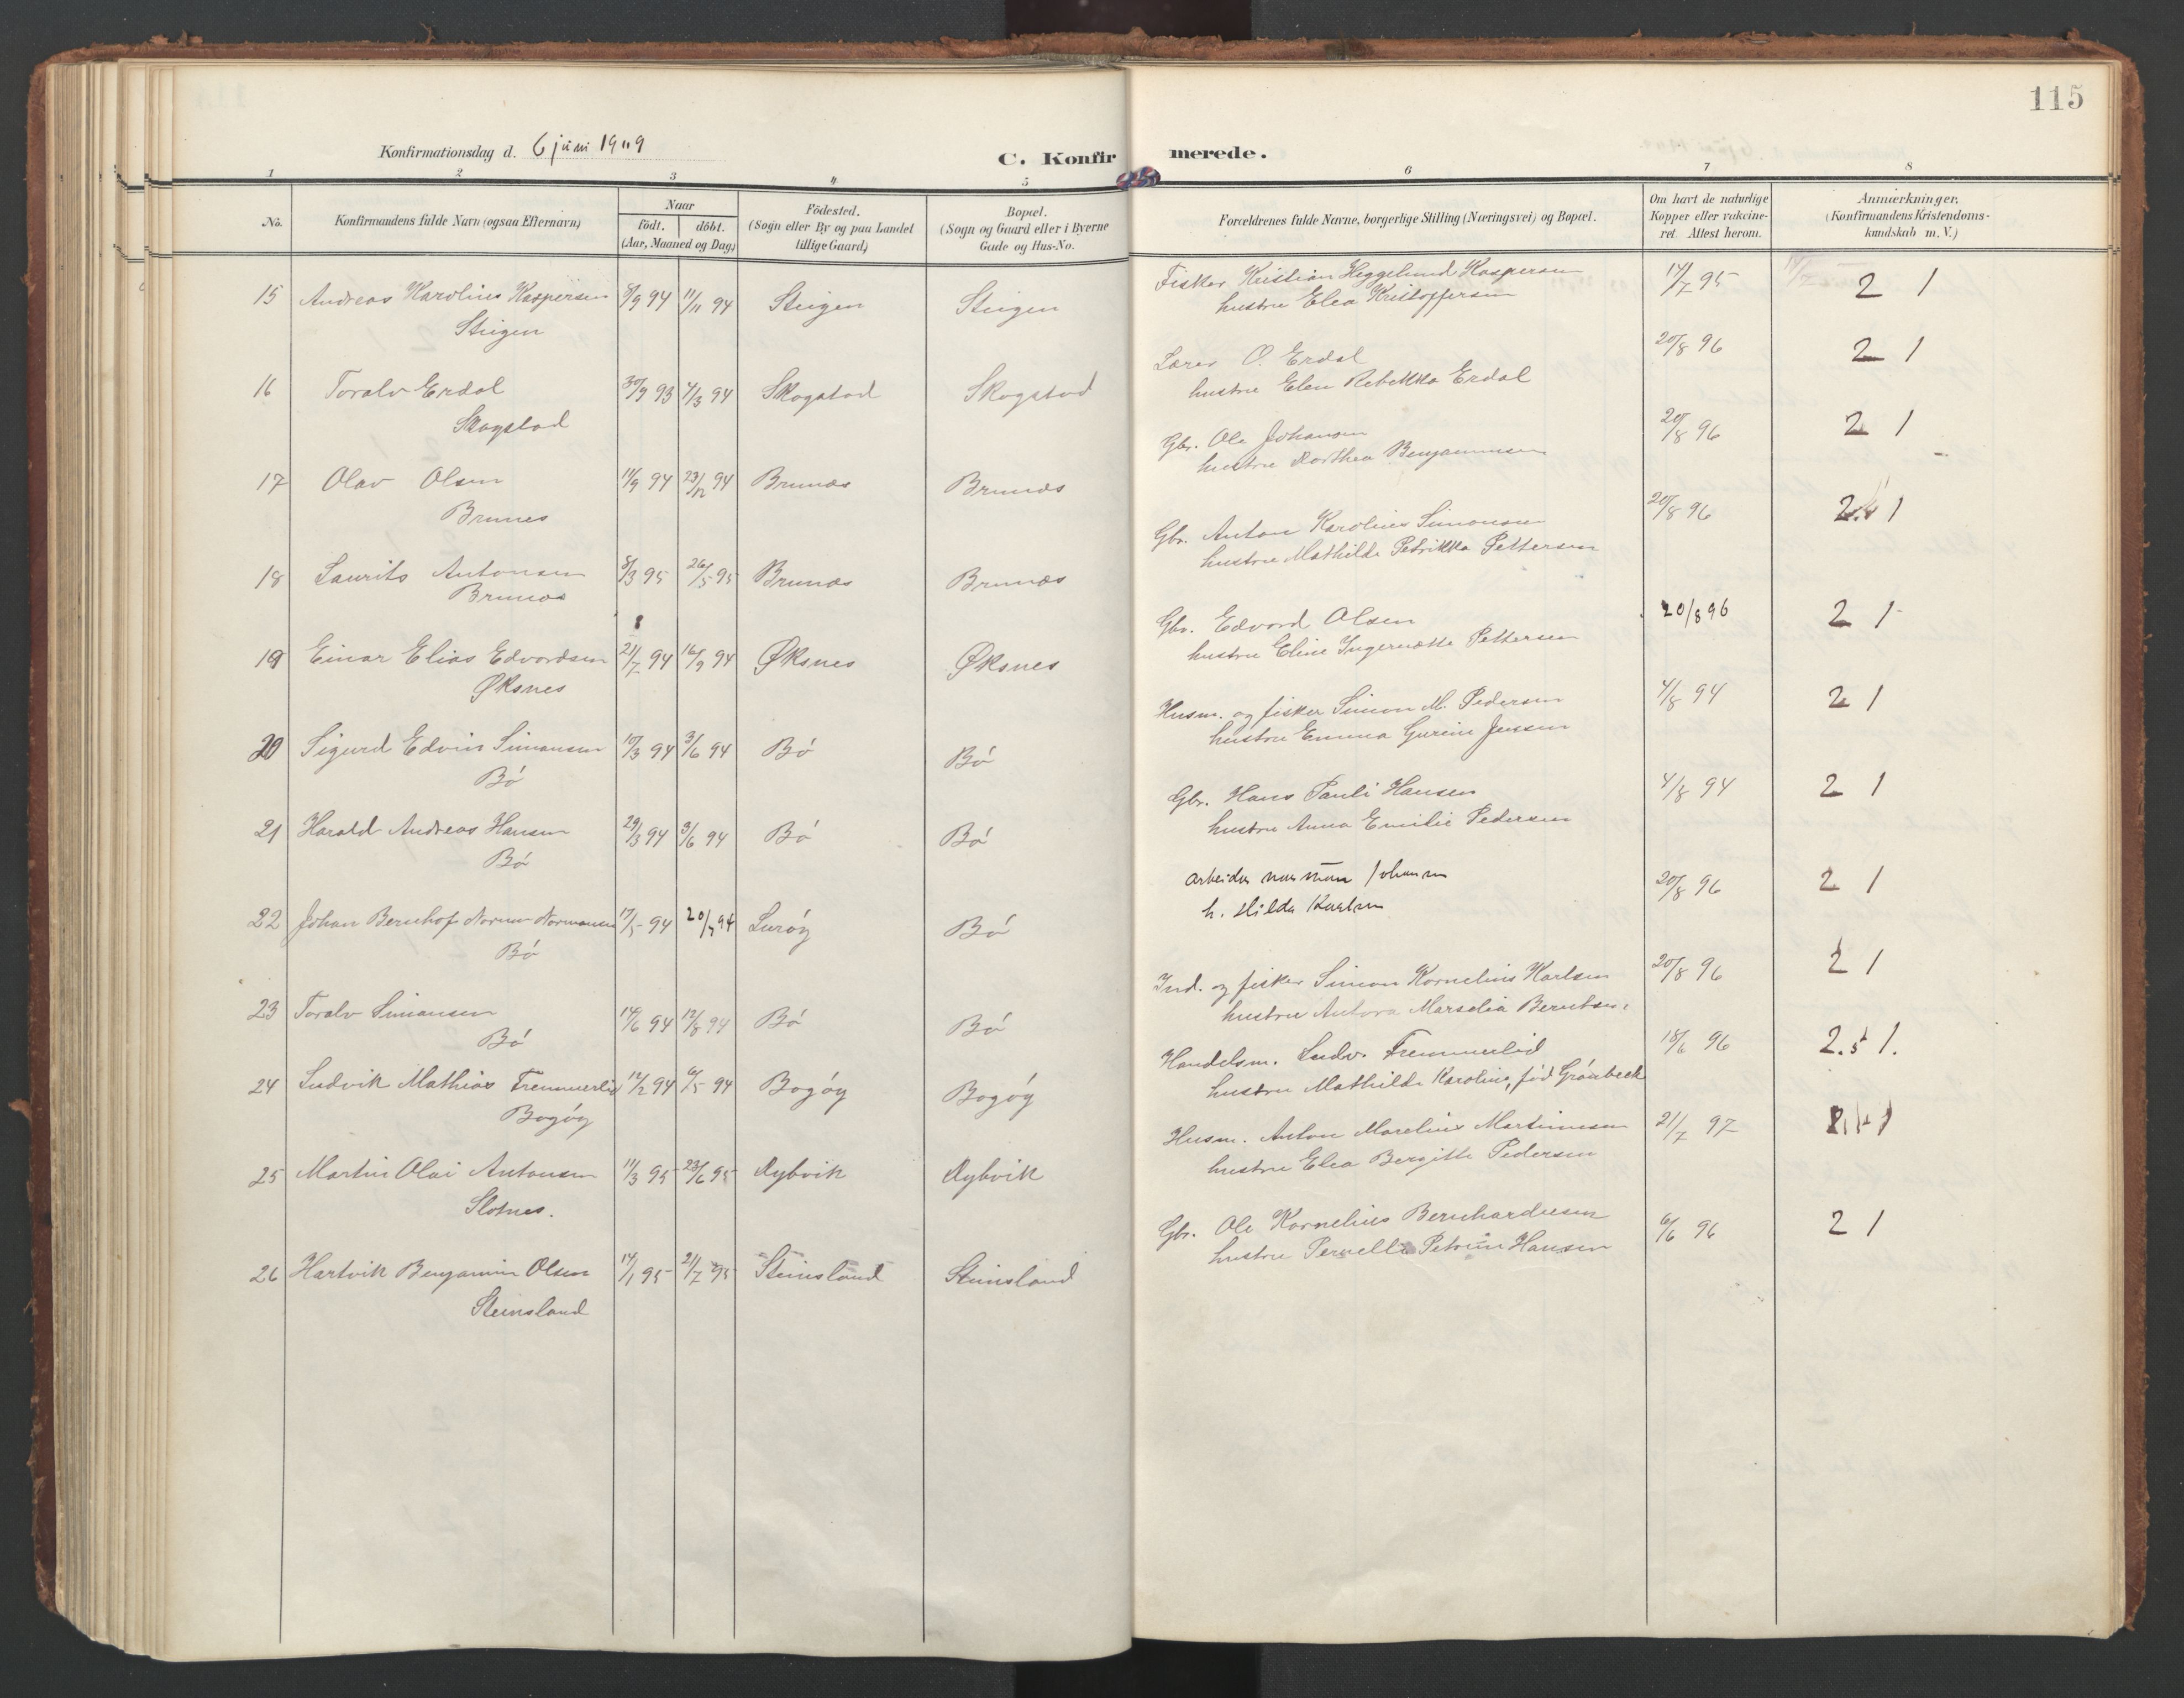 115
Konfirmationsdag d. 6 juni 1909
C. Konfirmerede.
1 2 3 4 5 6 7 8
No.
Konfirmandens fulde Navn (ogsaa Efternavn)
Naar
födt. döbt.
(Aar, Maaned og Dag)
Födested.
(Sogn eller By og paa Landet
tillige Gaard)
Bopæl.
(Sogn og Gaard eller i Byerne
Gade og Hus-No.
Forældrenes fulde Navne, borgerlige Stilling (Næringsvei) og Bopæl.
Om havt de naturlige
Kopper eller vakcine-
ret. Attest herom.
Anmærkninger,
(Konfirmandens Kristendoms-
kundskab m. V.)
15 Andreas Karolius Kaspersen 8/9 94 11/11 94 Steigen Steigen Fisker Kristian Heggelund Kaspersen 14/7 95 2 1
Steigen hustru Elea Kristoffersen
16 Toralv Erdal 30/9 93 4/3 94 Skogstad Skogstad Lærer O. Erdal 20/8 96 2 1
Skogstad hustru Elen Rebekka Erdal
17 Olav Olsen 11/9 94 23/12 94 Brunæs Brunæs Gbr. Ole Johansen 20/8 96 2 1
Brunes hustru Dorthea Benjaminsen
18 Laurits Antonsen 8/3 95 26/5 95 Brunæs Brunæs Gbr. Anton Karolius Simonsen 20/8 96 1
Brunæs hustru Mathilde Petrikka Pettersen
19 Einar Elias Edvardsen 21/7 94 16/9 94 Øksnes Øksnes Gbr. Edvard Olsen 20/8 96 2 1
Øksnes hustru Eline Ingernette Pettersen
20 Sigurd Edvin Simonsen 10/3 94 3/6 94 Bö Bö Husm. og fisker Simon M. Pedersen 4/8 94 2 1
Bö hustru Emma Gurine Jensen
21 Harald Andreas Hansen 29/3 94 3/6 94 Bö Bö Gbr. Hans Pauli Hansen 4/8 94 2 1
Bö hustru Anna Emilie Pedersen
22 Johan Bernhof Normansen 17/5 94 20/7 94 Luröy Bö Arbeider Norman Johansen 20/8 96 2 1
Bö h. Hilda Karlsen
23 Toralv Simonsen 14/6 94 12/8 94 Bö Bö Ind. og fisker Simon Kornelius Karlsen 20/8 96 2 1
Bö hustru Antora Marselia Berntsen
24 Ludvik Mathias Fremmerlid 12/2 94 6/5 94 Bogöy Bogöy Handelsm. Ludv. Fremmerlid 18/6 96 2.5 1.
Bogöy hustru Mathilde Karoline, föd Grönbeck
25 Martin Olai Antonsen 11/3 95 23/6 95 Nybvik Nybvik Husm. Anton Marelius Martinusen 21/7 97 1
Slotnes. hustru Elea Bergitte Pedersen
26 Hartvik Benjamin Olsen 14/1 95 21/7 95 Steinsland Steinsland Gbr. Ole Kornelius Bernhardusen 6/6 96 2 1
Steinsland hustru Pernelle Petrine Hansen